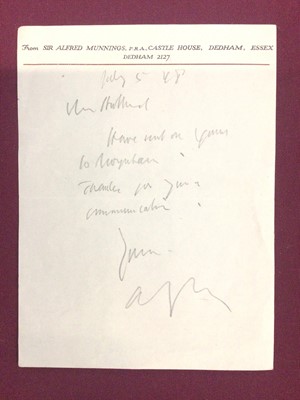 From SIR ALFRED MUNNINGS, P.R.A., CASTLE HOUSE, DEDHAM, ESSEX
DEDHAM 2127
July 5 48
Have sent on yours
to
Thanks for your
communication
Yours